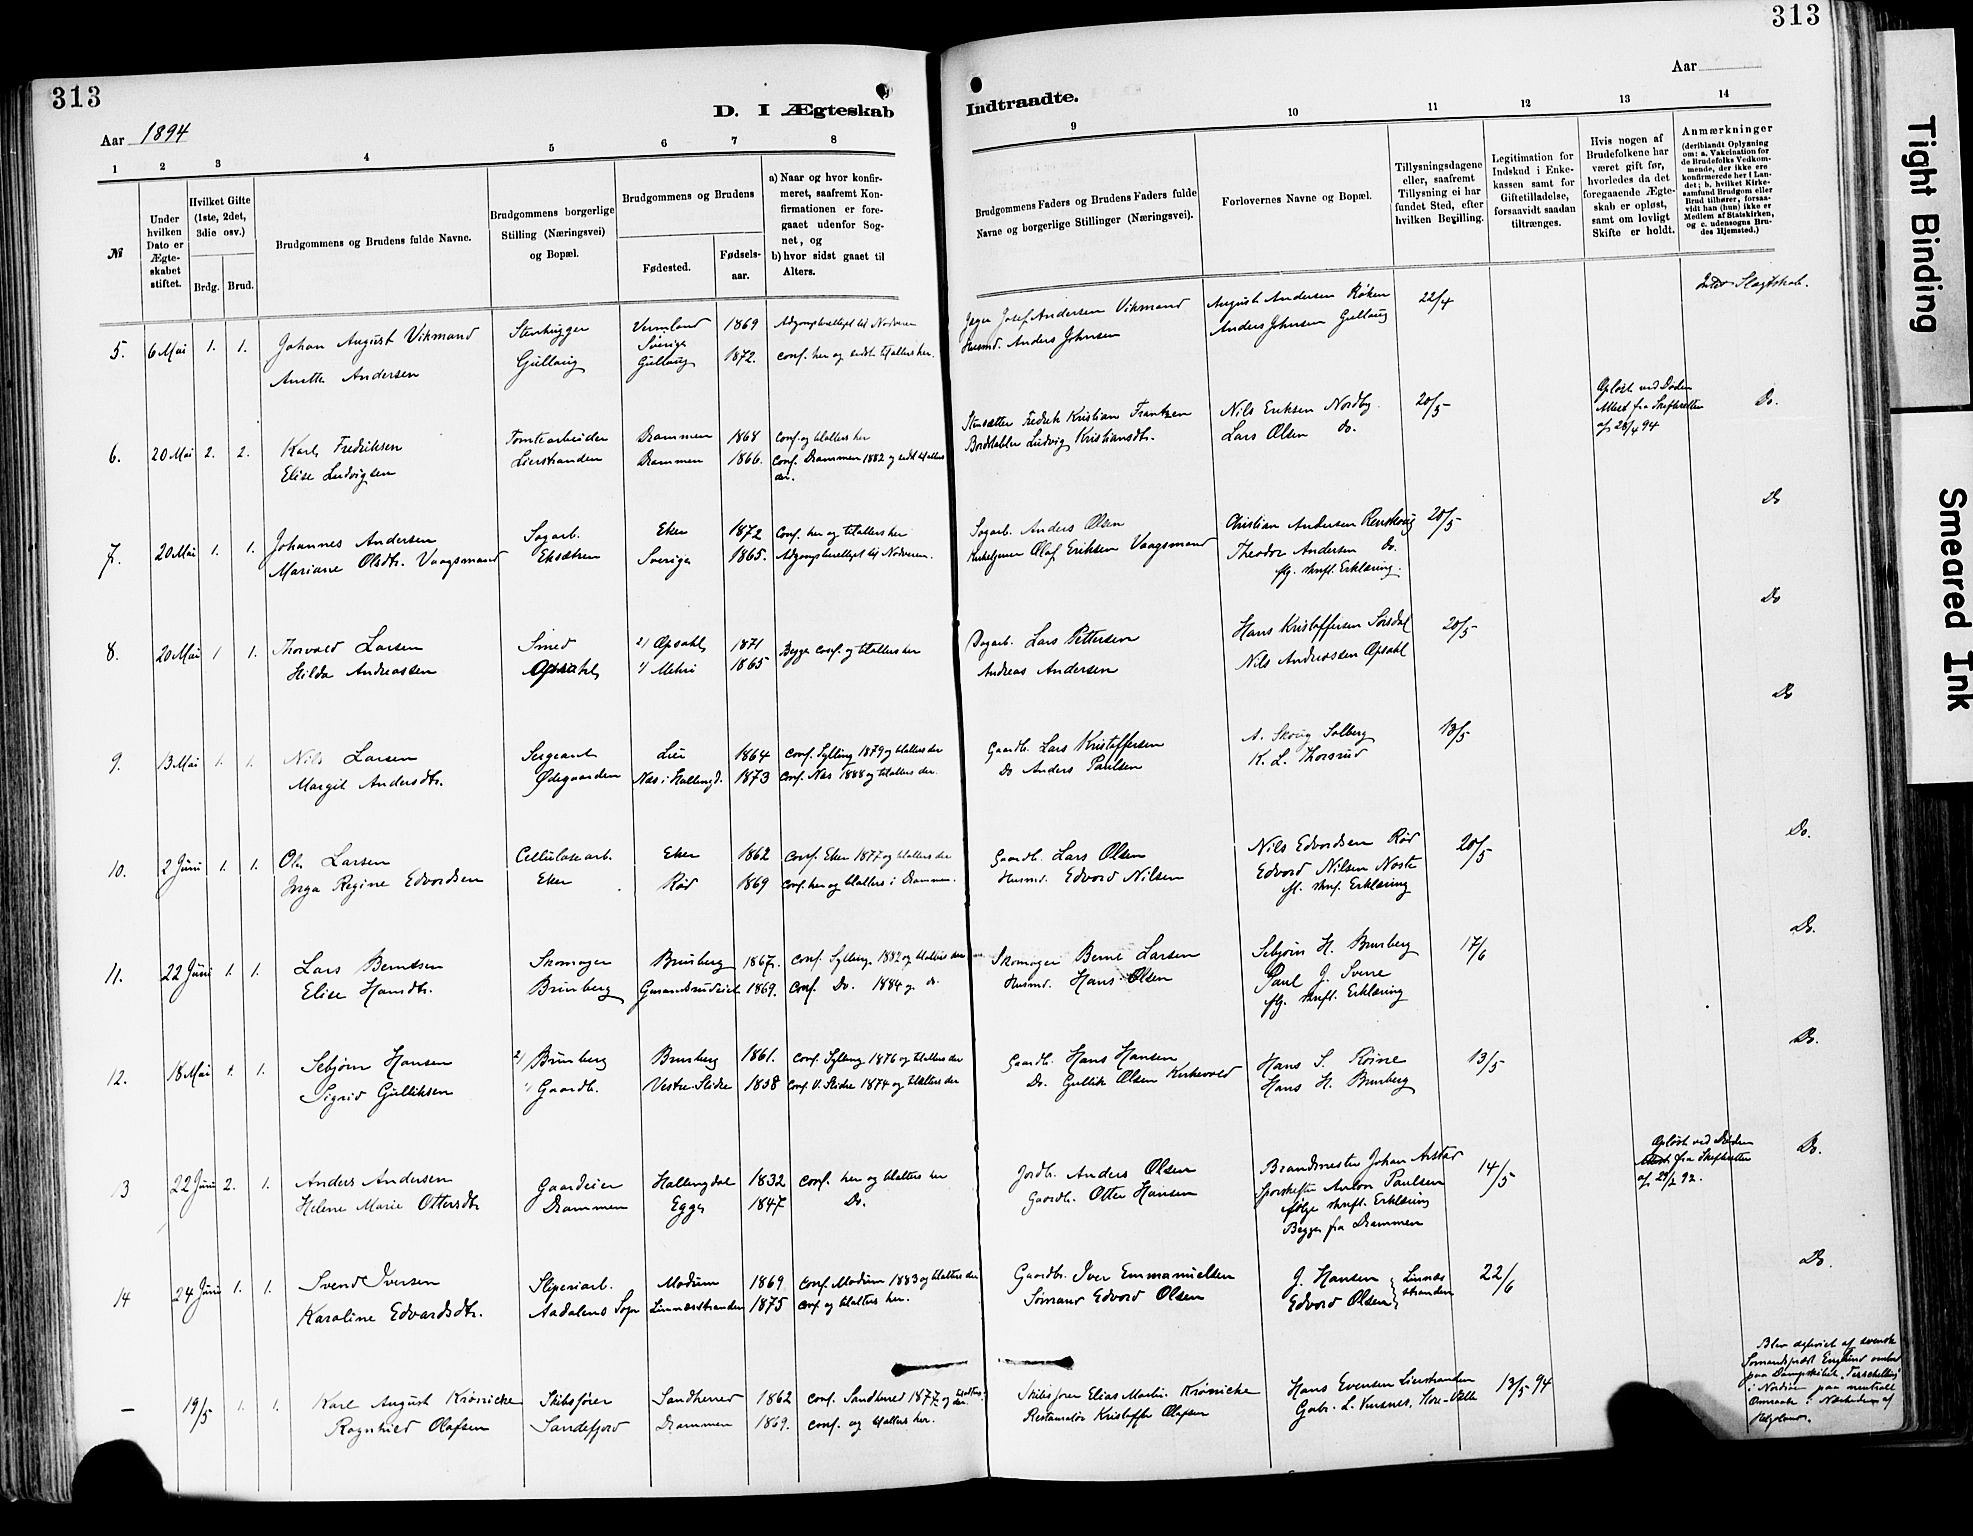 313
313
Aar 1894
D. I Ægteskab
Indtraadte.
Aar
1 2 3 4 5 6 7 8
9 10 11 12 13 14
№
Under hvilken Dato er Ægteskabet stiftet.
Hvilket Gifte (1ste, 2det, 3die osv.)
Brdg. Brud.
Brudgommens og Brudens fulde Navne.
Brudgommens borgerlige Stilling (Næringsvei) og Bopæl.
Brudgommens og Brudens
Fødested.
Fødselsaar.
a) Naar og hvor konfirmeret, saafremt Konfirmationen er foregaaet udenfor Sognet, og
b) hvor sidst gaaet til Alters.
Brudgommens Faders og Brudens Faders fulde Navne og borgerlige Stillinger (Næringsvei).
Forlovernes Navne og Bopæl.
Tillysningsdagene eller, saafremt Tillysning ei har fundet Sted, efter hvilken Bevilling.
Legitimation for Indskud i Enkekassen samt for Giftetilladelse, forsaavidt saadan tiltrænges.
Hvis nogen af Brudefolkene har været gift før, hvorledes da det foregaaende Ægteskab er opløst, samt om lovligt Skifte er holdt.
Anmærkninger
(deriblandt Oplysning om: a. Vakcination for de Brudefolks Vedkommende, der ikke ere konfirmerede her i Landet; b. hvilket Kirkesamfund Brudgom eller Brud tilhører, forsaavidt han (hun) ikke er Medlem af Statskirken, og c. udensogns Brudes Hjemsted.)
5. 6 Mai 1. 1. Johan August Vikmand Stenhugger Vermland Sverige 1869 Jæger Josef Andersen Vikmand August Andersen Røken 22/4 Slægtskab.
Anette Andersen Gullaug Gullaug 1872. conf. her og sidst til alters her. Husmd. Anders Johnsen Anders Johnsen Gullaug
6. 20 Mai 2. 2. Karl Fredriksen Tomtearbeider Drammen 1868 conf. og tilalters her Fredrik Kristian Frantzen Nils Eriksen Nordby 20/5 Opløst ved Døden Attest fra Skifteretten af 28/4 94 Do.
Elise Ludvigsen Lierstranden Drammen 1866. conf. Drammen 1882 og sidst til alters der. Ludvig Kristiansdtr. Lars Olsen do.
7. 20 Mai 1. 1. Johannes Andersen Sagarb. Eker 1872 conf. her og tilalters her Sagarb. Anders Olsen Christian Andersen Renskoug 20/5 Do
Mariane Olsdtr. Vaagsmand Eksætren Sverige 1865. Olaf Eriksen Vaagsmand Theodor Andersen Do.
flg. skriftl. Erklæring.
8. 20 Mai 1 1. Thorvald Larsen Smed 2) Opsahl 1871 Begge conf. og tilalters her Dagarb. Lars Pettersen Hans Kristoffersen Sørsdal 20/5 Do
Hilda Andreassen Opsahl 1) Mehri 1865 Andreas Andersen Nils Andreassen Opsahl
9. 13 Mai 1. 1. Nils Larsen Sergeant Lier 1864 conf. Sylling 1879 og tilalters der Gaardb. Lars Kristoffersen A. Skoug Solberg 13/5 Do
Margit Andersdtr. Ødegaarden Næs i Hallingd. 1873 conf. Næs 1888 og tilalters der. Do Anders Paulsen K. L. Thorsrud
10. 2 Juni 1. 1. Ole Larsen Cellulosearb. Eker 1862 conf. Eker 1877 og tilalters der Gaardb. Lars Olsen Nils Edvardsen Rød 20/5 Do.
Inga Regine Edvardsen Eker Rød 1869 conf. her og tilalters i Drammen. Husmd. Edvard Nilsen Edvard Nilsen Noste
fl. skrif. Erklæring
11. 22 Juni 1. 1. Lars Berntsen Skomager Brusberg 1867. conf. Sylling 1882 og tilalters der Skomager Bernt Larsen Sebjørn H. Brusberg 17/6 Do.
Elise Hansdtr. Brusberg 1869. conf. Do. 1884 og do. Husmd. Hans Olsen Paul G. Svere
flg. skriftl. Erklæring
12. 18 Mai 1. 1. Sebjørn Hansen 2) Brusberg Brusberg 1861. conf. Sylling 1876 og tilalters der Gaardb. Hans Hansen Hans S. Røine 13/5 Do.
Sigrid Gulliksen 1) Gaardb. Vestre Slidre 1858 conf. V. Slidre 1874 og tilalters der Do. Gullik Olsen Kirkevold Hans H. Brusberg
13 22 Juni 2. 1. Anders Andersen Gaardeier Hallingdal 1832 conf. her og tilalters her Jordb. Anders Olsen Brandmester Johan Arstad 14/5 Opløst ved Døden Attest fra Skifteretten Do.
Helene Marie Ottersdtr Drammen Egge 1847 Do. Gaardb. Otter Hansen Sporskifter Anton Paulsen
ifølge skriftl. Erklæring
Begge fra Drammen
14 24 Juni 1. 1. Svend Iversen Sliperiarb. Modum 1869. conf. Modum 1883 og tilalters der Gaardbr. Iver Emmanuelsen G. Hansen Linnæsstranden 22/6 Do.
Karoline Edvardsdtr. Aadalens Sogn Linnæsstranden 1875 conf. og tilalters her. Sømand Edvard Olsen Edvard Olsen
— 19/5 1. 1. Karl August Krönicke Skibsfører Sandherred 1862 conf. Sandherred 1877 og tilalters der. Skibsfører Elias Martin Krönicke Hans Evensen Lierstranden 13/5 94
Ragnhild Olafsen Sandefjord Drammen 1869. conf. og tilalters her. Restauratør Kristoffer Olafsen Gabr. L.
Blev af svensk Sømandsprest England ombord paa Dampskibet "Terschelling" i Nordsøen paa neutralt Omraade i Nærheden af Helgoland.
Tight Binding
Smeared Ink